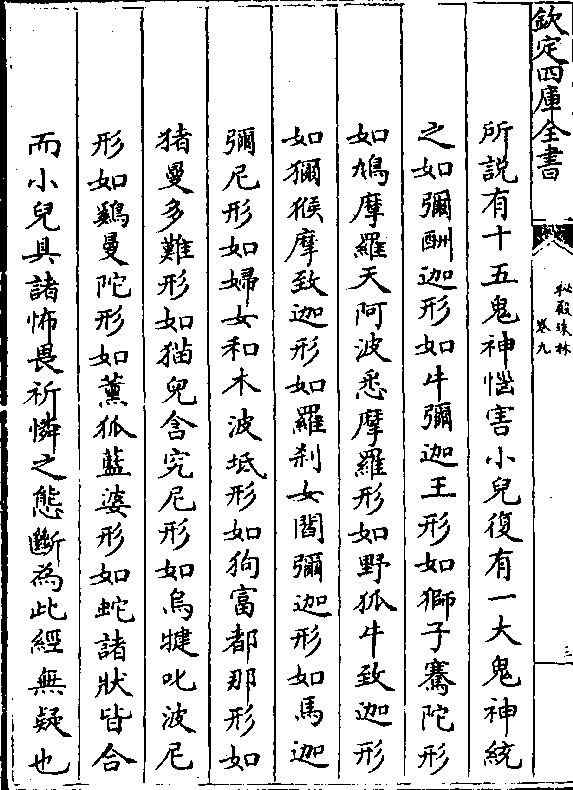 欽定四庫全書
秘殿珠林
卷九
三
所說有十五鬼神惱害小兒復有一大鬼神統
之如彌酬迦形如牛彌迦王形如獅子騫陀形
如鳩摩羅天阿波悉摩羅形如野狐牛致迦形
如獼猴摩致迦形如羅刹女閻彌迦形如馬迦
彌尼形如婦女和木波坻形如狗富都那形如
猪曼多難形如猫兒含究尼形如烏揵叱波尼
形如鷄曼陀形如薰狐藍婆形如蛇諸狀皆合
而小兒具諸怖畏祈憐之態斷為此經無疑也